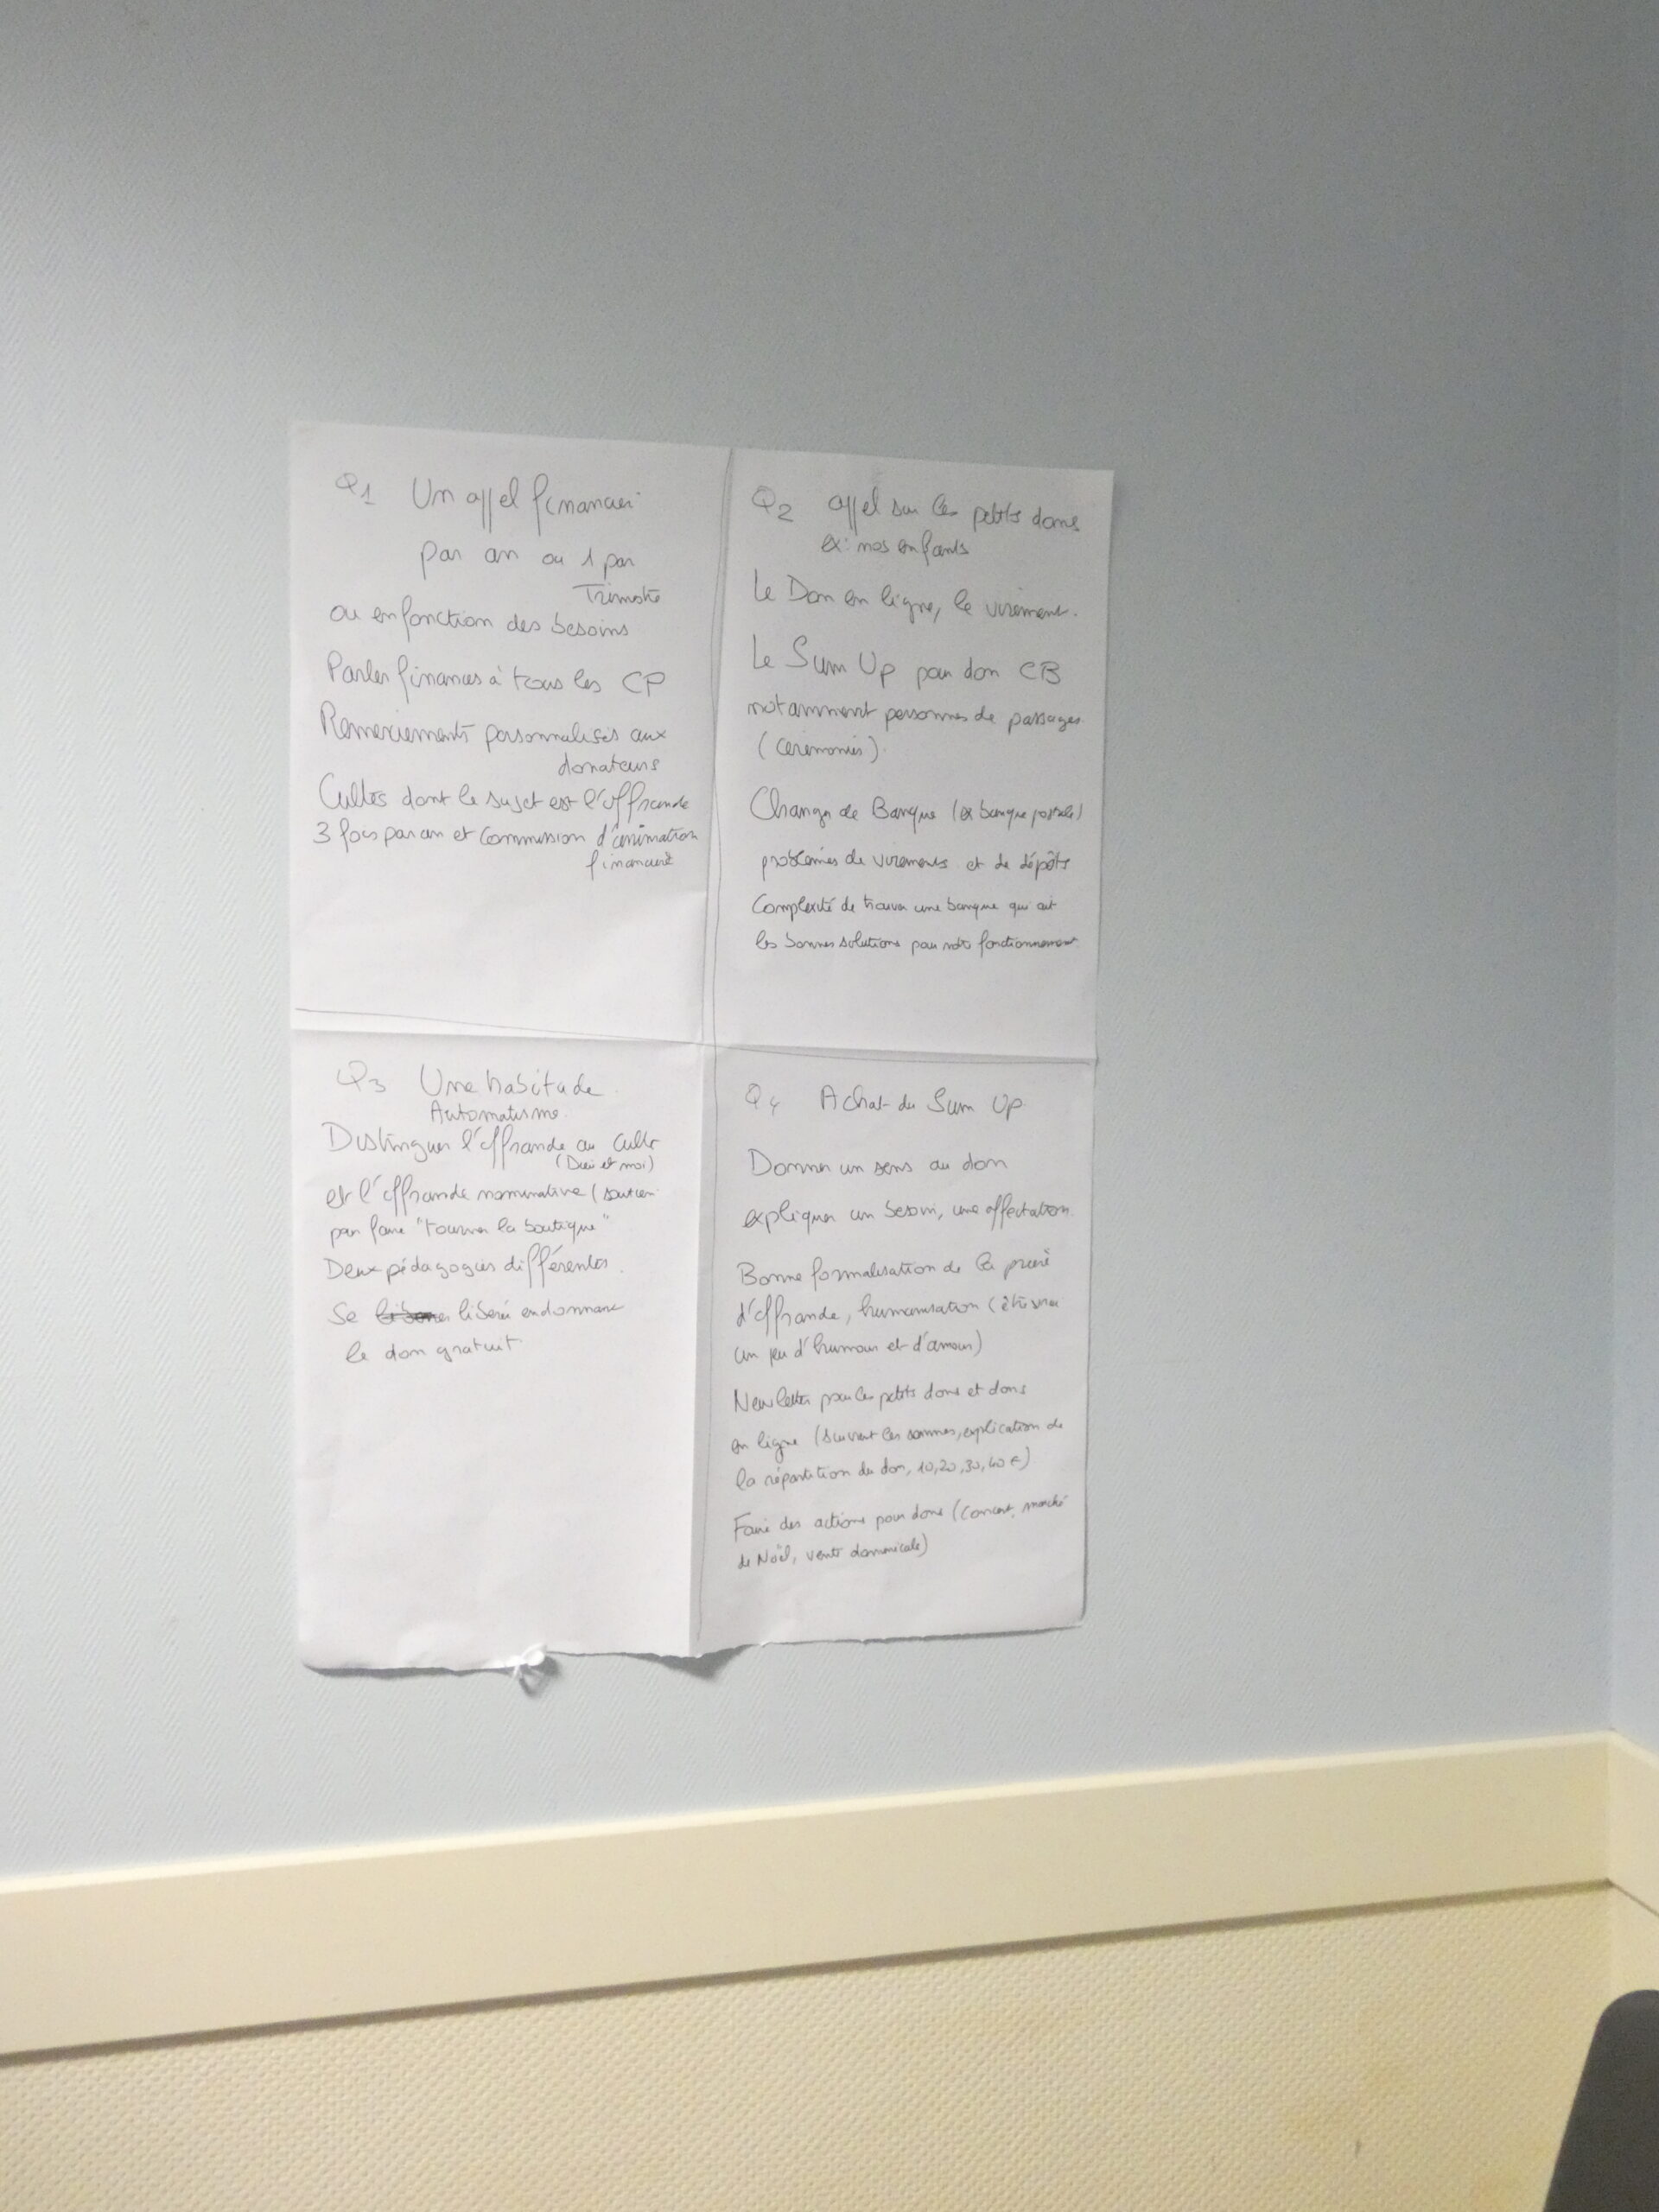 Q1 Un appel financier
par an ou 1 par
Trimestre
ou en fonction des besoins
Parler finances à tous les CP
Remerciements personnalisés aux
donateurs
Cultes dont le sujet est l'offrande
3 fois par an et commission d'animation
financière
Q2 appel sur les petits dons
ex: nos enfants
Le Don en ligne, le virement.
Le Sum Up pour don CB
notamment personnes de passages
(cérémonies).
Changer de Banque (ex banque postale)
problèmes de virements et de dépôts
Complexité de trouver une banque qui ait
les bonnes solutions pour notre fonctionnement
Q3 Une habitude.
Automatisme.
Distinguer l'offrande au culte
(Dieu et moi)
et l'offrande nominative (soutien
pour faire "tourner la boutique"
Deux pédagogies différentes.
Se libérer en donnant
le don gratuit
Q4 Achat du Sum Up
Donner un sens au don
expliquer un besoin, une affectation.
Bonne formalisation de la prière
d'offrande, humanisation (être
un peu d'humour et d'amour)
Newletter pour les petits dons et dons
en ligne (suivant les sommes, explication de
la répartition du don, 10,20,30,40 €)
Faire des actions pour dons (concert, marché
de Noël, vente dominicale)